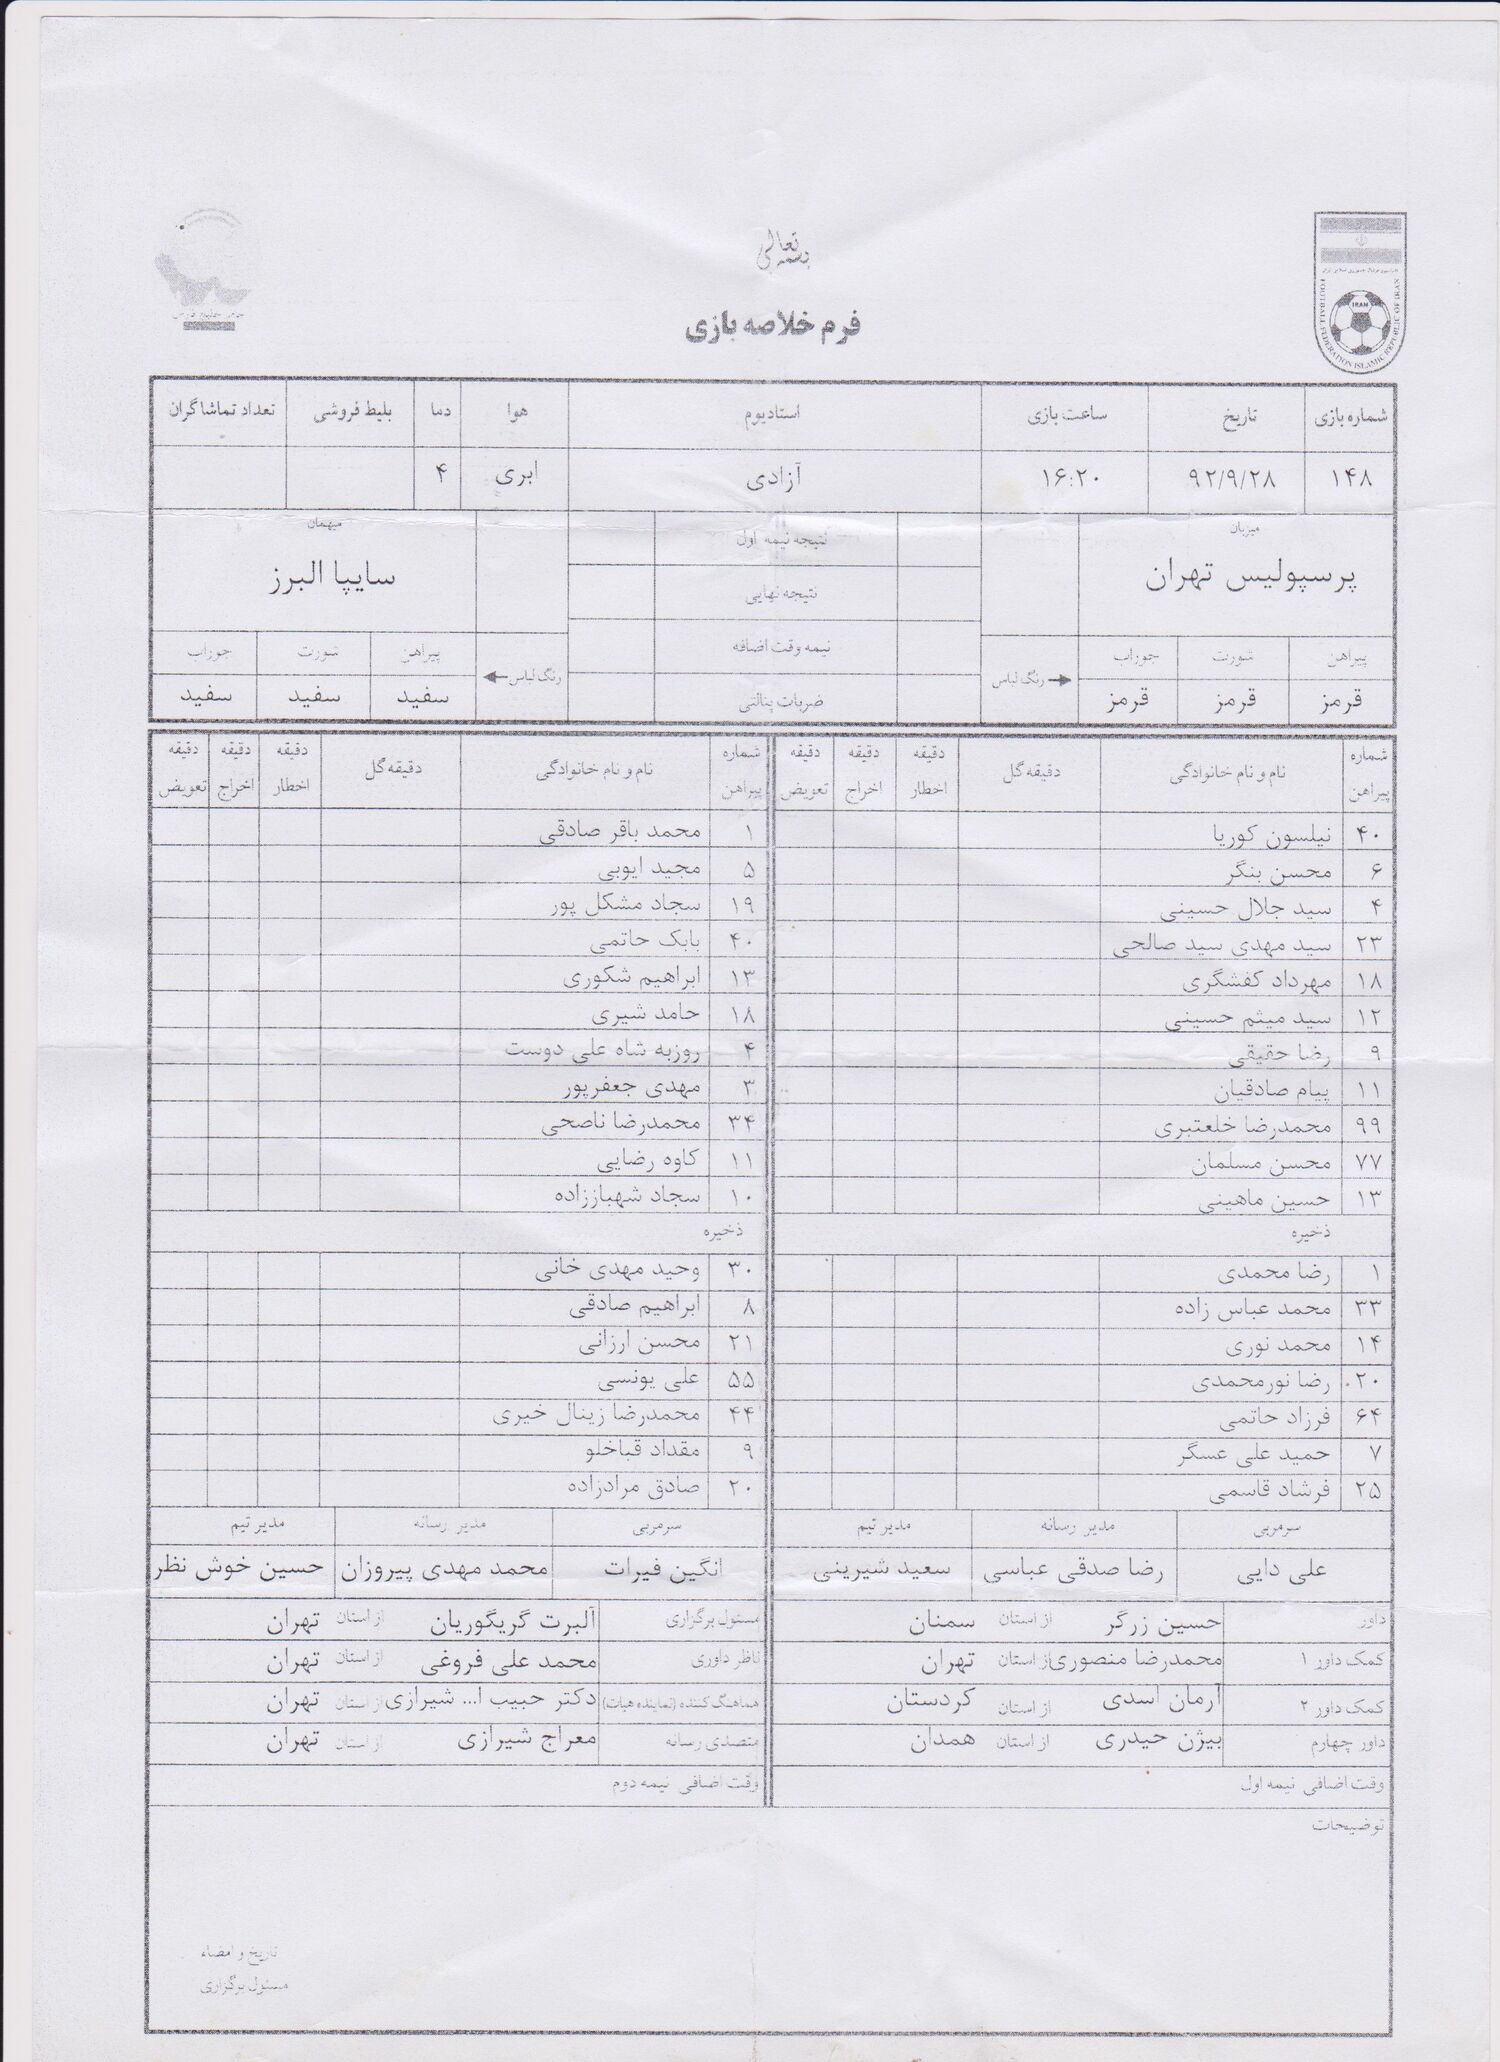 بسمه تعالی
فرم خلاصه بازی
IRAN
FOOTBALL FEDERATION ISLAMIC REPUBLIC OF IRAN
شماره بازی تاریخ ساعت بازی استادیوم هوا دما بلیط فروشی تعداد تماشاگران
۱۴۸ ۹۲/۹/۲۸ ۱۶:۲۰ آزادی ابری ۴
میزبان نتیجه نیمه اول میهمان
پرسپولیس تهران نتیجه نهایی سایپا البرز
نیمه وقت اضافه
پیراهن شورت جوراب رنگ لباس ضربات پنالتی رنگ لباس پیراهن شورت جوراب
قرمز قرمز قرمز سفید سفید سفید
شماره پیراهن نام و نام خانوادگی دقیقه گل دقیقه اخطار دقیقه اخراج دقیقه تعویض شماره پیراهن نام و نام خانوادگی دقیقه گل دقیقه اخطار دقیقه اخراج دقیقه تعویض
۴۰ نیلسون کوریا ۱ محمد باقر صادقی
۶ محسن بنگر ۵ مجید ایوبی
۴ سید جلال حسینی ۱۹ سجاد مشکل پور
۲۳ سید مهدی سید صالحی ۴۰ بابک حاتمی
۱۸ مهرداد کفشگری ۱۳ ابراهیم شکوری
۱۲ سید میثم حسینی ۱۸ حامد شیری
۹ رضا حقیقی ۴ روزبه شاه علی دوست
۱۱ پیام صادقیان ۳ مهدی جعفرپور
۹۹ محمدرضا خلعتبری ۳۴ محمدرضا ناصحی
۷۷ محسن مسلمان ۱۱ کاوه رضایی
۱۳ حسین ماهینی ۱۰ سجاد شهباززاده
ذخیره ذخیره
۱ رضا محمدی ۳۰ وحید مهدی خانی
۳۳ محمد عباس زاده ۸ ابراهیم صادقی
۱۴ محمد نوری ۲۱ محسن ارزانی
۲۰ رضا نورمحمدی ۵۵ علی یونسی
۶۴ فرزاد حاتمی ۴۴ محمدرضا زینال خیری
۷ حمید علی عسگر ۹ مقداد قباخلو
۲۵ فرشاد قاسمی ۲۰ صادق مرادزاده
سرمربی مدیر رسانه مدیر تیم سرمربی مدیر رسانه مدیر تیم
علی دایی رضا صدقی عباسی سعید شیرینی انگین فیرات محمد مهدی پیروزان حسین خوش نظر
داور حسین زرگر از استان سمنان مسئول برگزاری آلبرت گریگوریان از استان تهران
کمک داور ۱ محمدرضا منصوری از استان تهران ناظر داوری محمد علی فروغی از استان تهران
کمک داور ۲ آرمان اسدی از استان کردستان هماهنگ کننده (نماینده هیات) دکتر حبیب ا... شیرازی از استان تهران
داور چهارم بیژن حیدری از استان همدان متصدی رسانه معراج شیرازی از استان تهران
وقت اضافی نیمه اول وقت اضافی نیمه دوم
توضیحات
تاریخ و امضاء
مسئول برگزاری